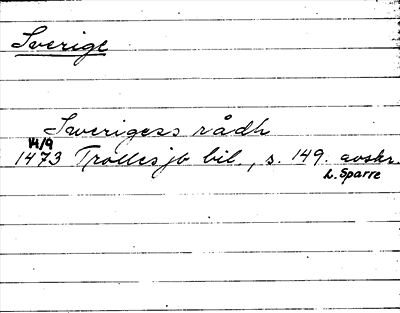 Sverige
Sweriges rådh
14/9
1473 Trollesjö bil., s. 149. avskr.
L. Sparre